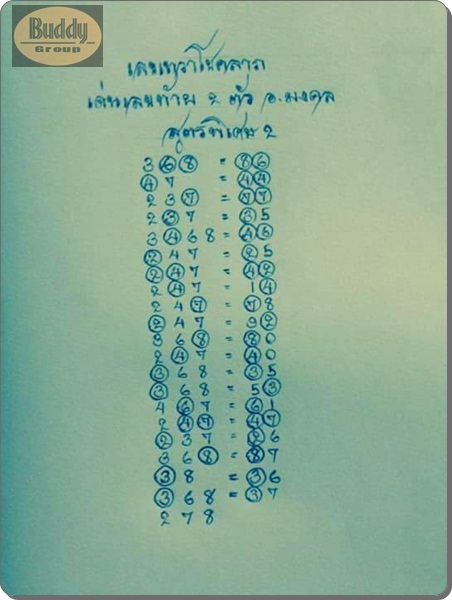 Buddy
Group
เลขเทวาโชคลาภ
เด่นเลขท้าย 2 ตัว อ.มงคล
สูตรพิเศษ 2
3 6 8 = 8 6
4 7 = 4 4
2 3 7 = 7 7
2 3 7 = 3 5
3 4 6 8 = 4 6
2 4 7 = 2 5
2 4 7 = 4 2
2 4 7 = 1 4
2 4 7 = 7 8
2 4 7 = 9 2
3 6 8 = 8 0
2 4 7 = 4 0
3 6 8 = 3 5
3 6 8 = 5 3
4 6 7 = 6 1
2 4 7 = 4 7
2 3 7 = 2 6
3 6 8 = 8 7
3 8 = 3 6
3 6 8 = 3 7
2 7 8